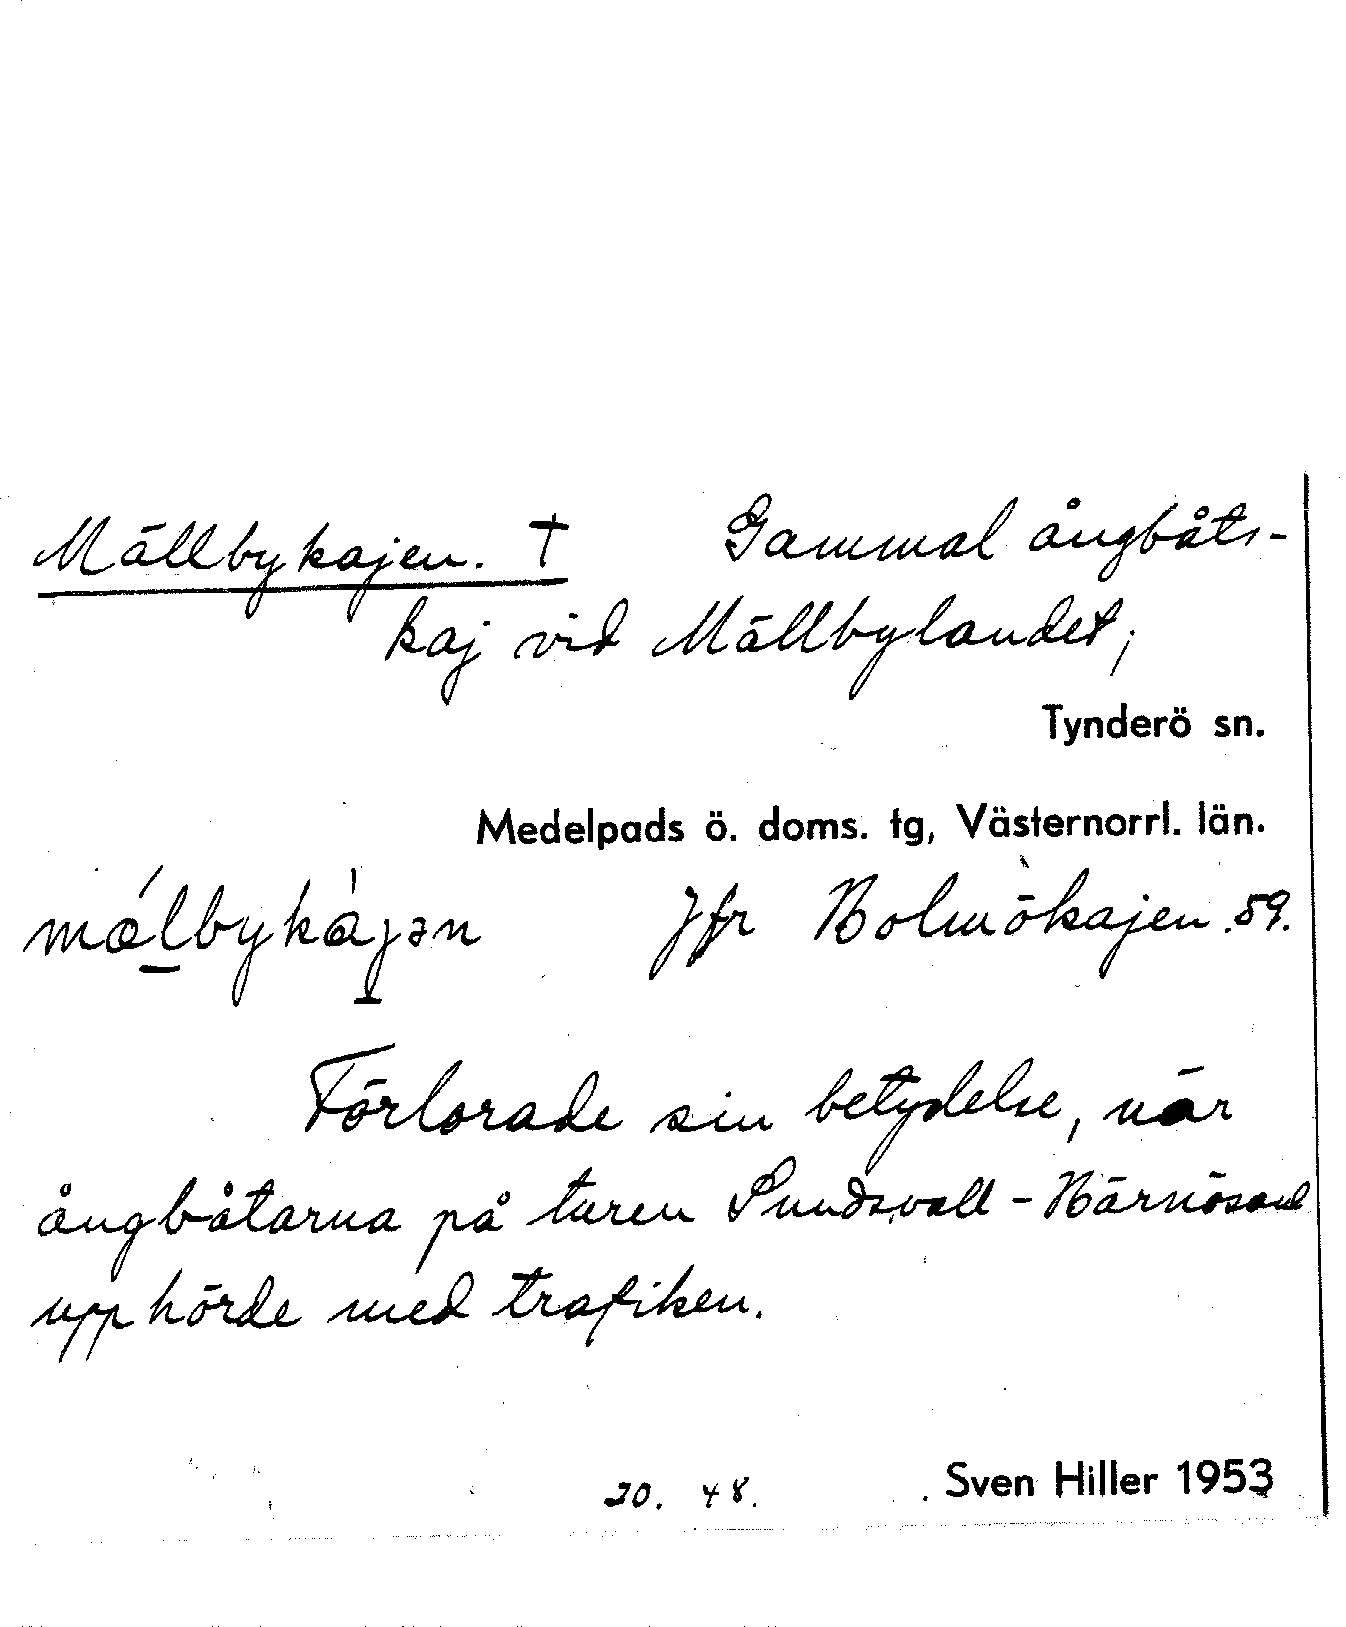 Mällbykajen. † Gammal ångbåts-
kaj vid Mällbylandet,
Tynderö sn.
Medelpads ö. doms. tg, Västernorrl. län.
Jfr Holmökajen 59.
Förlorade sin betydelse, när
ångbåtarna på turen Sundsvall - Härnösand
upphörde med trafiken.
20. 48. Sven Hiller 1953